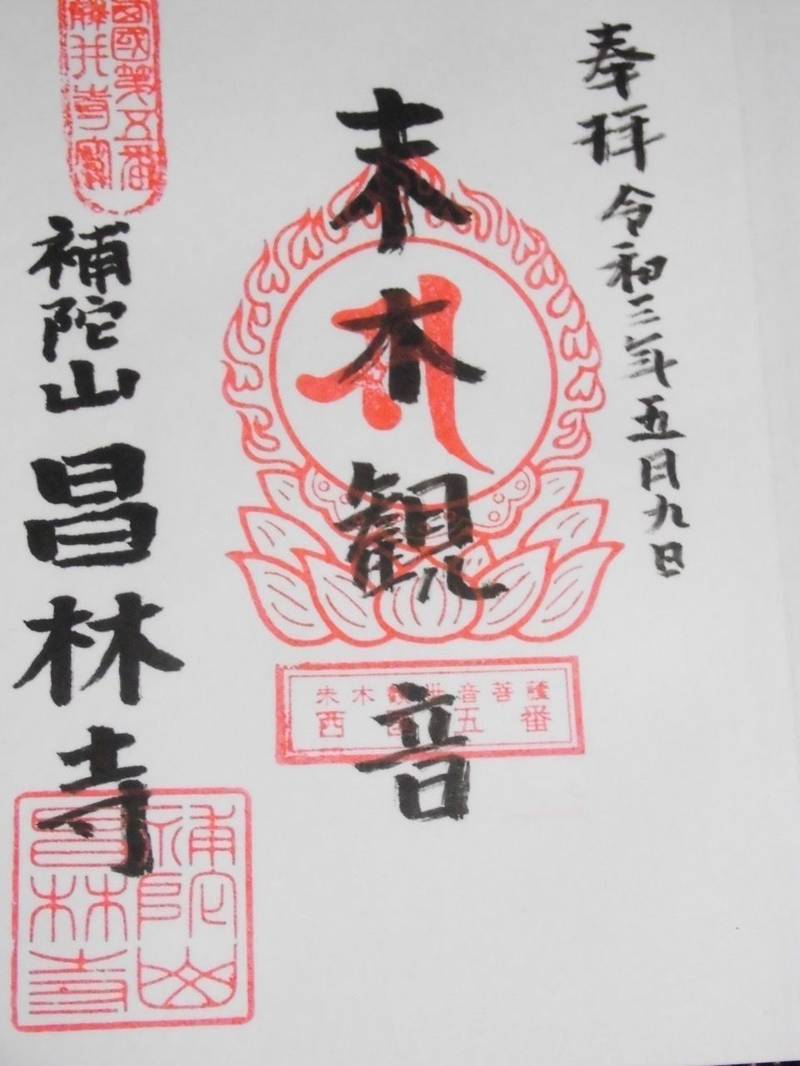 奉拝 令和三年五月九日
末木観音
末木観世音菩薩
西国五番
西國第五番
藤井寺寫
補陀山 昌林寺
補陀山
昌林寺